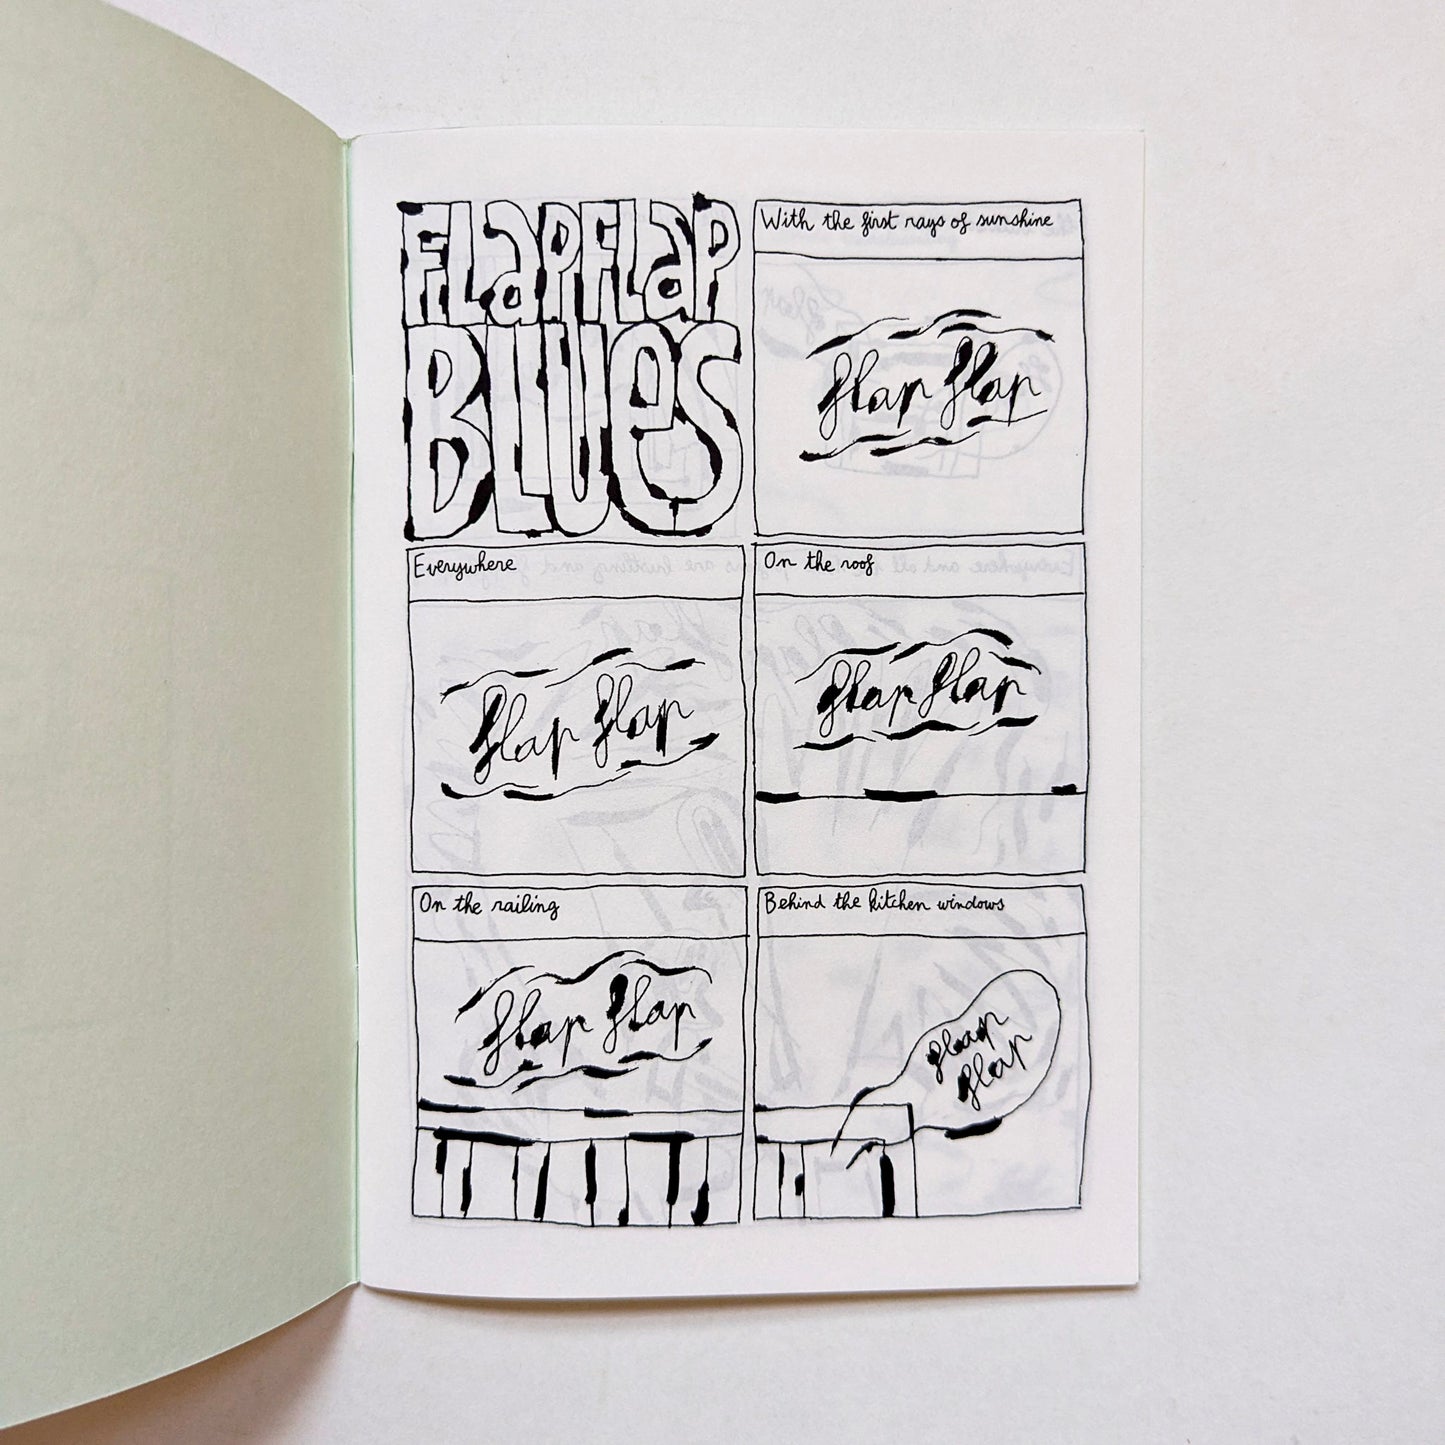 FLaPFLaP
BLUeS
With the first rays of sunshine
flap flap
Everywhere
flap flap
On the roof
flap flap
On the railing
flap flap
Behind the kitchen windows
flap
flap